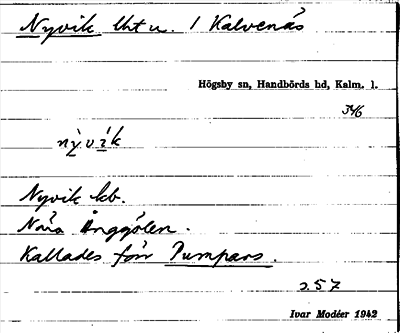 Nyvik lht u. 1 Kalvenäs
Högsby sn, Handbörds hd, Kalm. l.
3⁴/6
nỳvík
Nyvik kb.
Nära Ånggölen.
Kallades förr Pumpars.
257
Ivar Modéer 1942